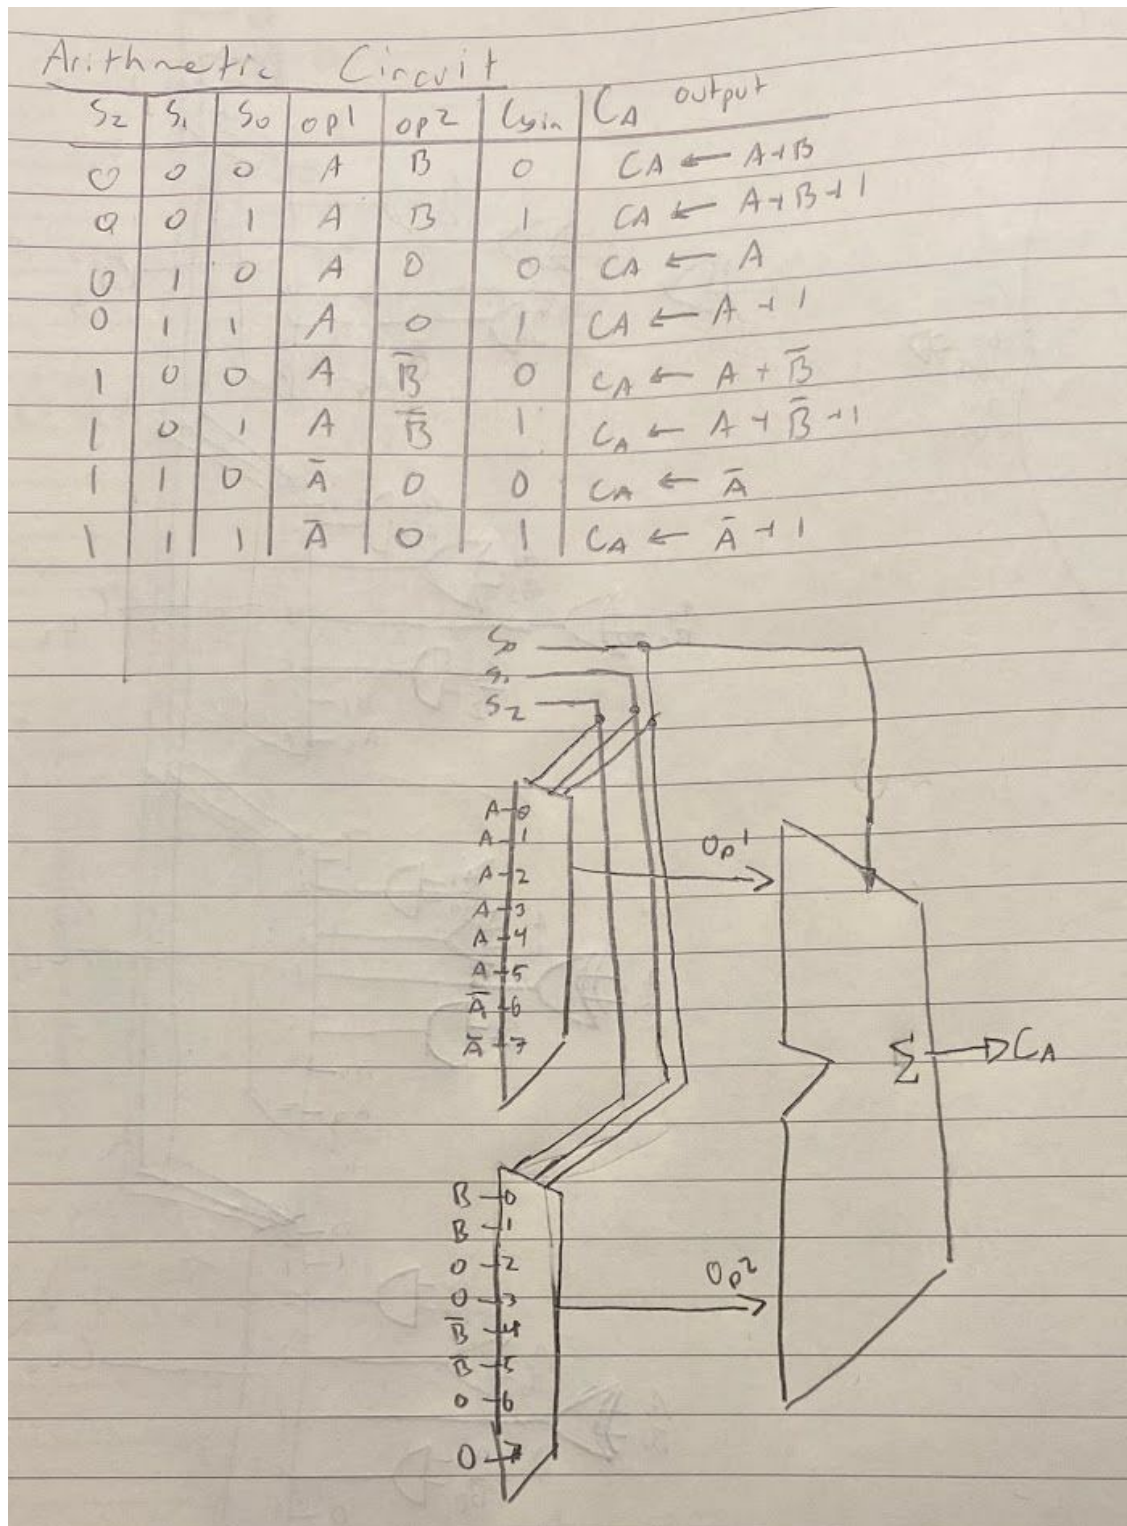 Arithmetic Circuit
S₂ S₁ S₀ op1 op2 Cyin CA output
0 0 0 A B 0 CA ← A+B
0 0 1 A B 1 CA ← A+B+1
0 1 0 A 0 0 CA ← A
0 1 1 A 0 1 CA ← A+1
1 0 0 A B̅ 0 CA ← A+B̅
1 0 1 A B̅ 1 CA ← A+B̅+1
1 1 0 A̅ 0 0 CA ← A̅
1 1 1 A̅ 0 1 CA ← A̅+1
S₀
S₁
S₂
A 0
A 1
Op1
A 2
A 3
A 4
A 5
A̅ 6
A̅ 7
Σ CA
B 0
B 1
0 2
Op2
0 3
B̅ 4
B̅ 5
0 6
0 7